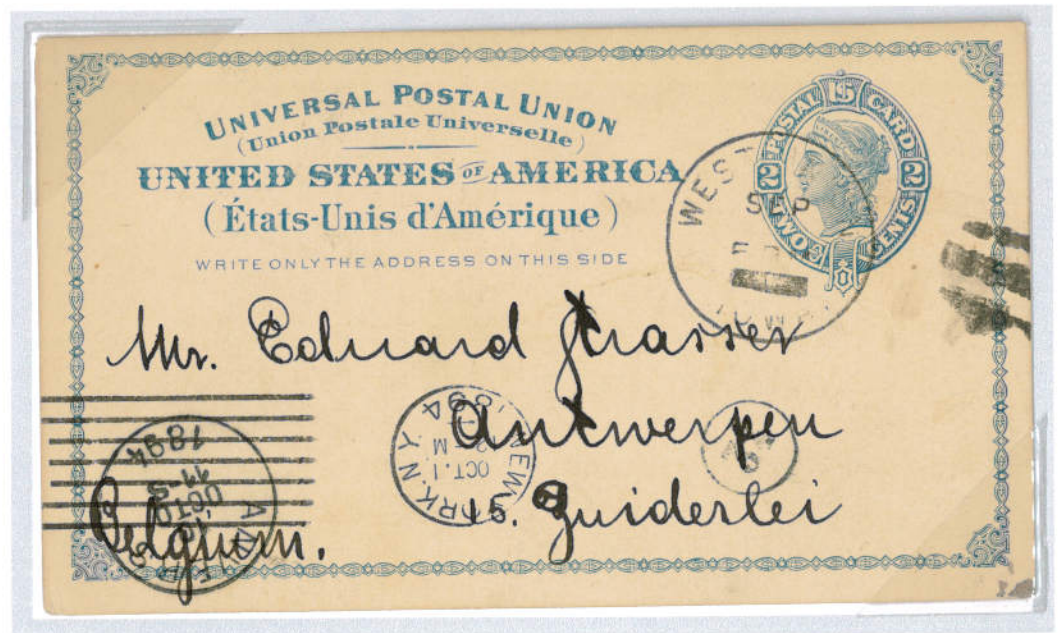 UNIVERSAL POSTAL UNION
(Union Postale Universelle)
UNITED STATES OF AMERICA
(États-Unis d'Amérique)
WRITE ONLY THE ADDRESS ON THIS SIDE
POSTAL 1S CARD
2 2
TWO CENTS
WEST
SEP
IOWA
Mr. Eduard Strasser
Antwerpen
Belgium.
NEW YORK, N.Y.
OCT. 1
'94
1894
11-S
OCTO